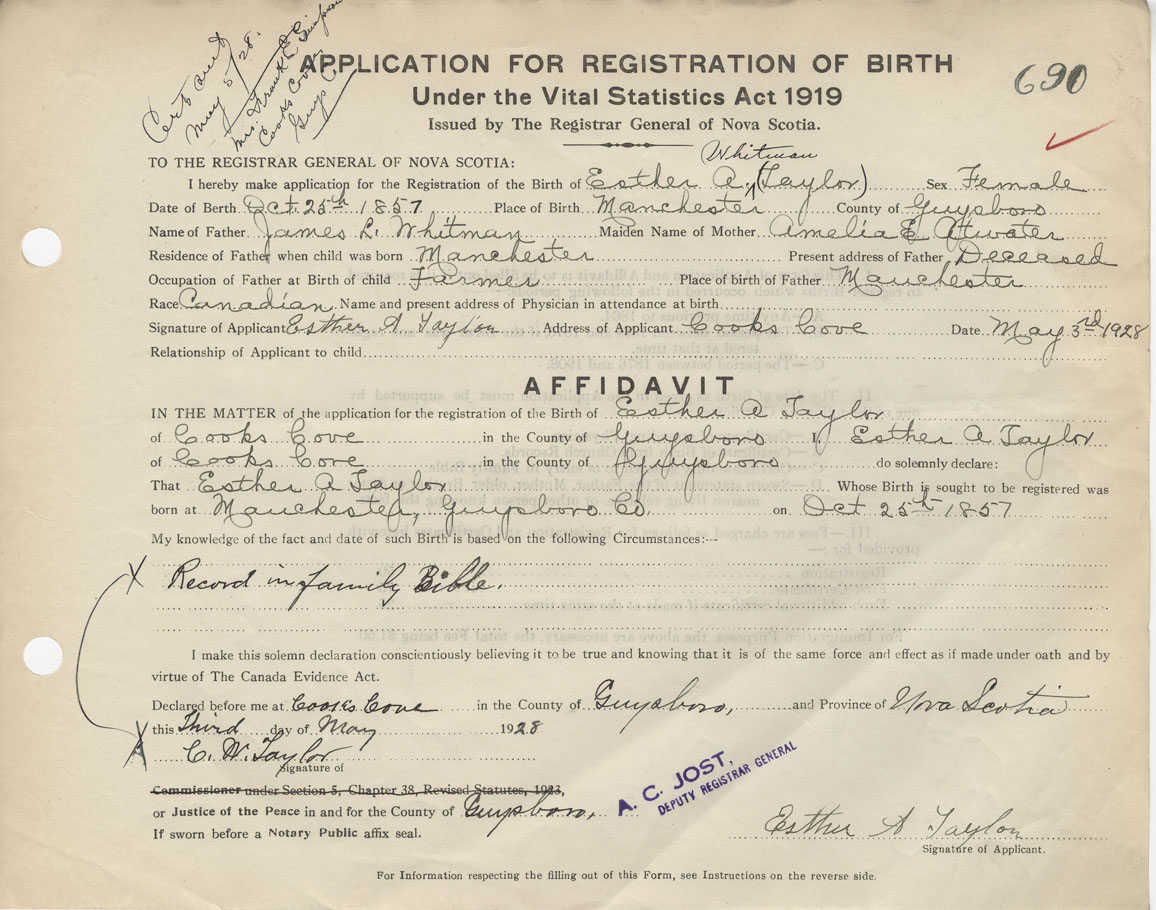 Cert sent
May 5/28.
Mrs. Frank E Simpson
Cooks Cove
Guys Co
APPLICATION FOR REGISTRATION OF BIRTH
690
Under the Vital Statistics Act 1919
Issued by The Registrar General of Nova Scotia.
Whitman
TO THE REGISTRAR GENERAL OF NOVA SCOTIA:
I hereby make application for the Registration of the Birth of Esther A. (Taylor) Sex Female
Date of Berth Oct. 25th 1857 Place of Birth Manchester County of Guysboro
Name of Father James L. Whitman Maiden Name of Mother Amelia E Atwater
Residence of Father when child was born Manchester Present address of Father Deceased
Occupation of Father at Birth of child Farmer Place of birth of Father Manchester
Race Canadian Name and present address of Physician in attendance at birth
Signature of Applicant Esther A Taylor Address of Applicant Cooks Cove Date May 3rd 1928
Relationship of Applicant to child
AFFIDAVIT
IN THE MATTER of the application for the registration of the Birth of Esther A Taylor
of Cooks Cove in the County of Guysboro I, Esther A Taylor
of Cooks Cove in the County of Guysboro do solemnly declare:
That Esther A Taylor Whose Birth is sought to be registered was
born at Manchester, Guysboro Co. on Oct 25th 1857
My knowledge of the fact and date of such Birth is based on the following Circumstances:--
X Record in family Bible.
I make this solemn declaration conscientiously believing it to be true and knowing that it is of the same force and effect as if made under oath and by
virtue of The Canada Evidence Act.
Declared before me at Cooks Cove in the County of Guysboro, and Province of Nova Scotia
this Third day of May 1928
X C. W. Taylor
Signature of
Commissioner under Section 5, Chapter 38, Revised Statutes, 1923,
or Justice of the Peace in and for the County of Guysboro,
If sworn before a Notary Public affix seal.
A. C. JOST,
DEPUTY REGISTRAR GENERAL
Esther A Taylor
Signature of Applicant.
For Information respecting the filling out of this Form, see Instructions on the reverse side.